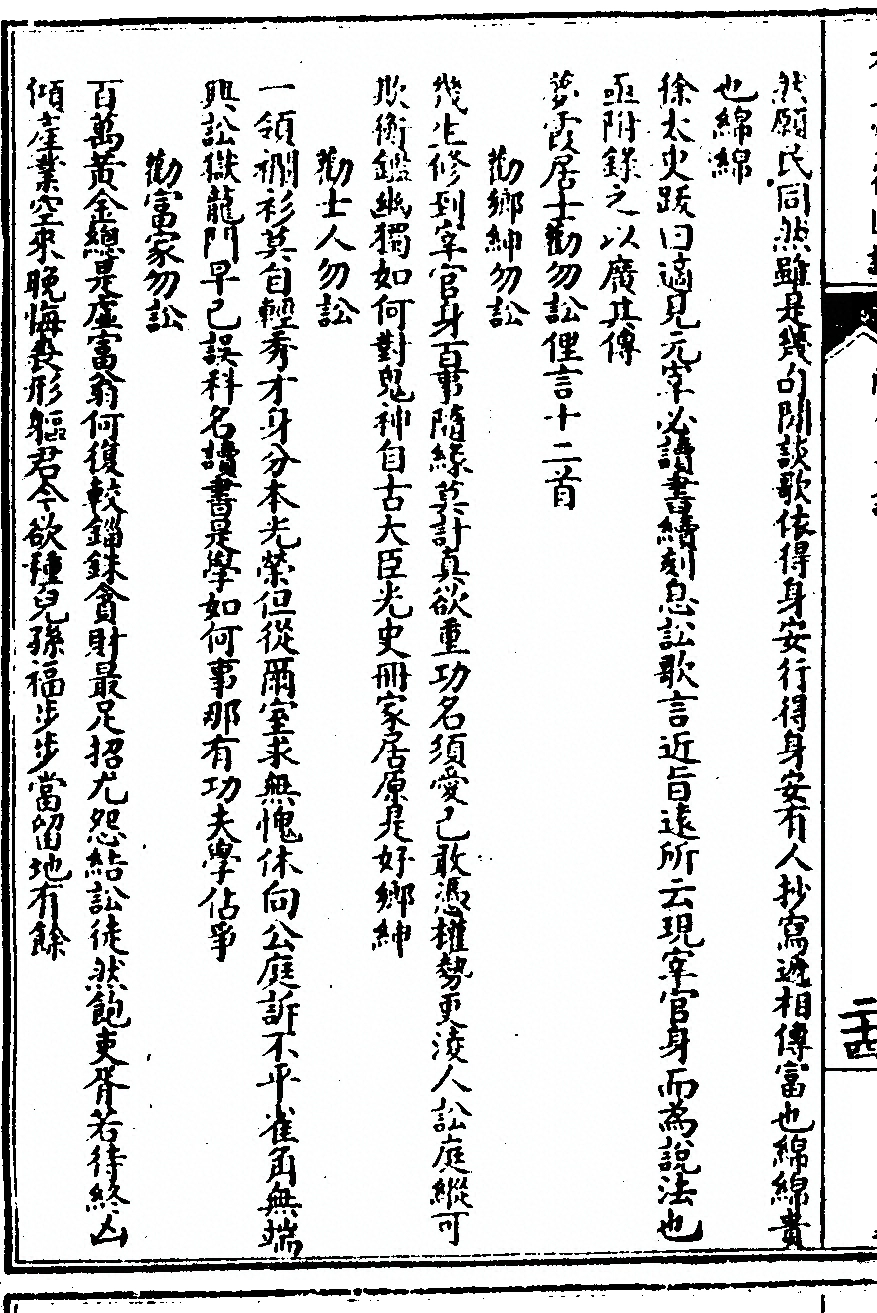 然願民同然雖是幾句閒談歌依得身安行得身安有人抄寫遞相傳富也綿綿貴
也綿綿
徐太史跋曰適見元宰必讀書續刻息訟歌言近旨遠所云現宰官身而為說法也
亟附錄之以廣其傳
夢霞居士勸勿訟俚言十二首
勸鄉紳勿訟
幾生修到宰官身百事隨緣莫計真欲重功名須愛己敢憑權勢更淩人訟庭縱可
欺衡鑑幽獨如何對鬼神自古大臣光史冊家居原是好鄉紳
勸士人勿訟
一領襴衫莫自輕秀才身分本光榮但從爾室求無愧休向公庭訴不平雀角無端
興訟獄龍門早已誤科名讀書是學如何事那有功夫學佔爭
勸富家勿訟
百萬黃金總是虛富翁何復較錙銖貪財最足招尤怨結訟徒然飽吏胥若待終凶
傾產業空來晚悔喪形軀君今欲種兒孫福步步當留地有餘
二十四